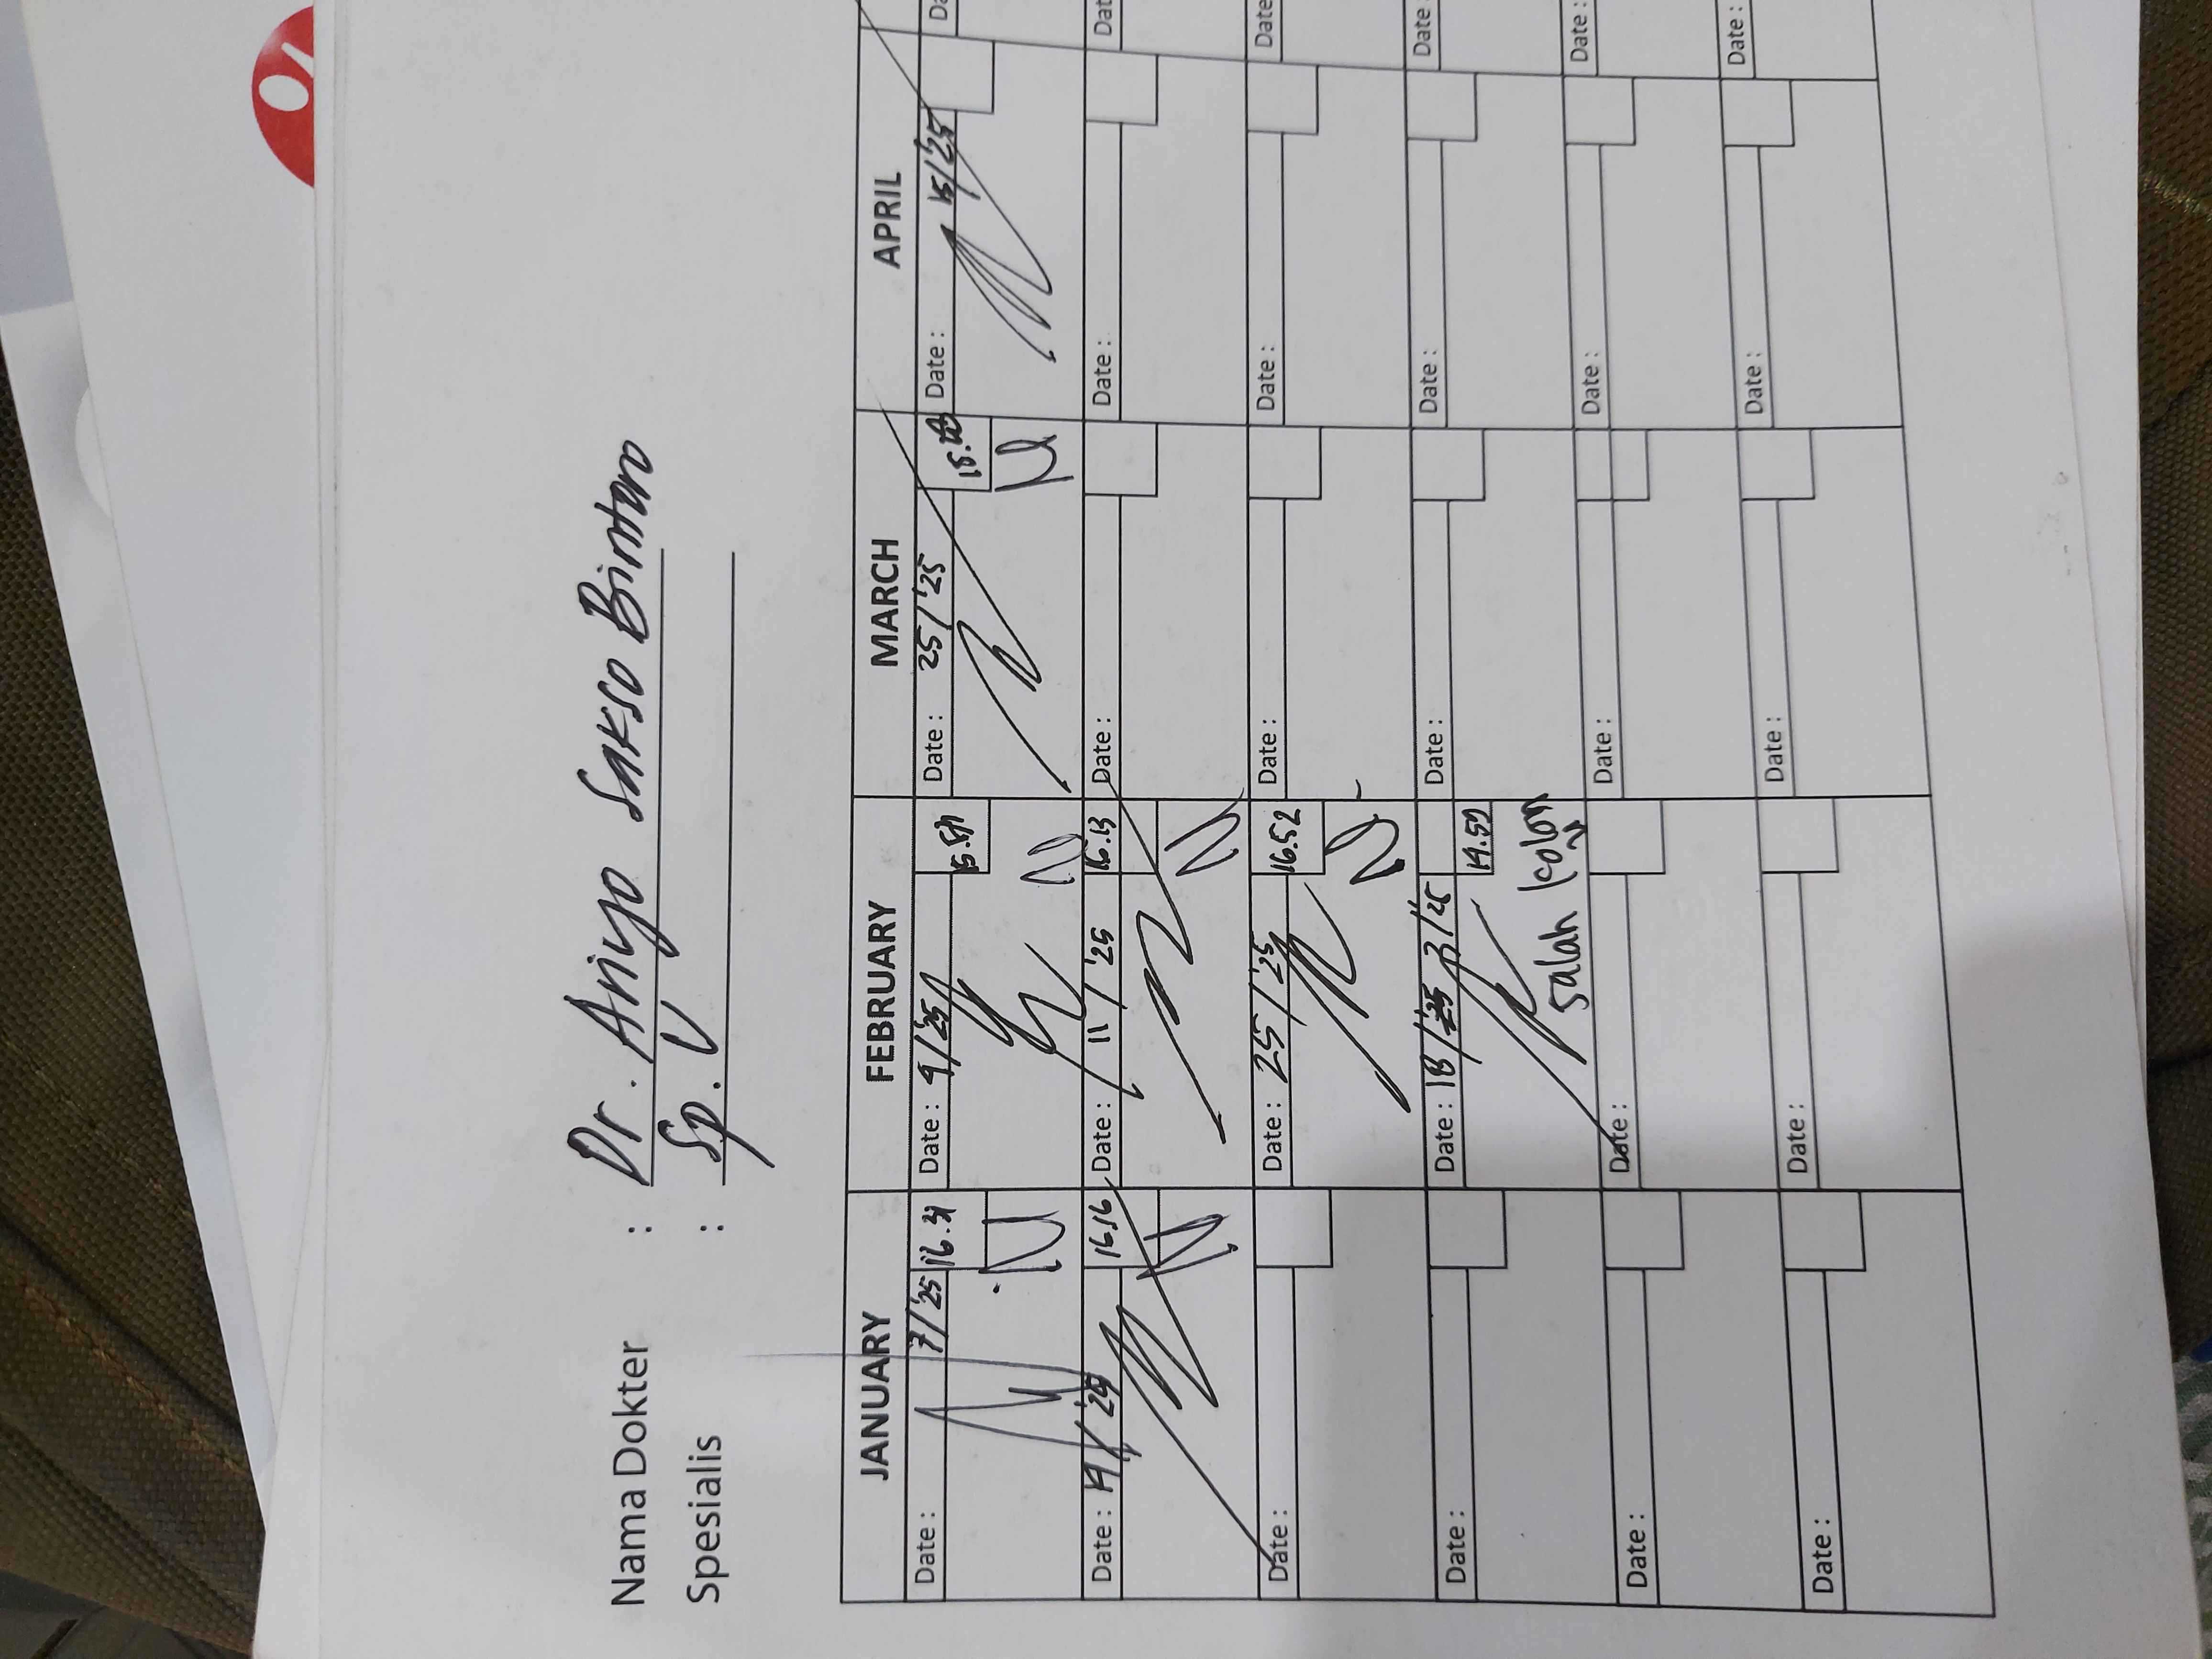 Nama Dokter : Dr. Ariyo Sakso Bintoro
Spesialis : Sp. U
JANUARY FEBRUARY MARCH APRIL
Date : 7/'25 16.31 Date : 4/'25 Date : 25/'25 Date : 15/'25 Da
Date : 14/ 16.16 Date : 11/'25 16.13 Date : Date : Dat
Date : Date : 25/'25 16.52 Date : Date : Date
Date : Date : 18/'25 3/'25 14.59 Date : Date : Date :
salah kolom
Date : Date : Date : Date : Date :
Date : Date : Date : Date : Date :